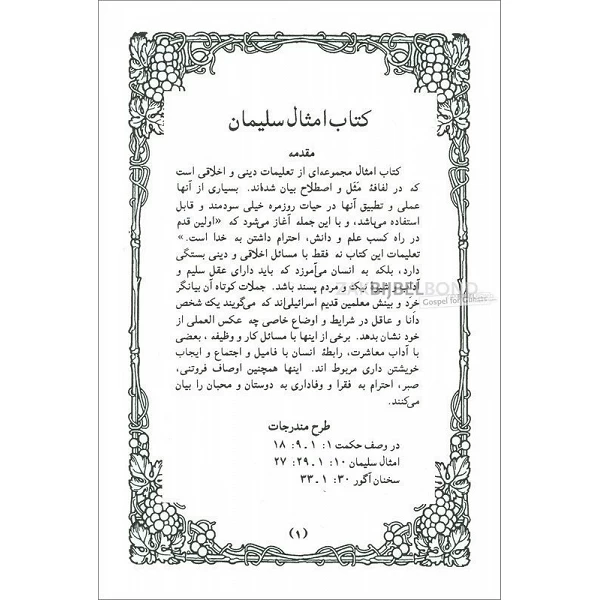 کتاب امثال سلیمان
مقدمه
کتاب امثال مجموعه‌ای از تعلیمات دینی و اخلاقی است
که در لفافهٔ مَثَل و اصطلاح بیان شده‌اند. بسیاری از آنها
عملی و تطبیق آنها در حیات روزمره خیلی سودمند و قابل
استفاده می‌باشد، و با این جمله آغاز می‌شود که «اولین قدم
در راه کسب علم و دانش، احترام داشتن به خدا است.»
تعلیمات این کتاب نه فقط با مسائل اخلاقی و دینی بستگی
دارد، بلکه به انسان می‌آموزد که باید دارای عقل سلیم و
آداب نیک و مردم پسند باشد. جملات کوتاه آن بیانگر
خِرَد و بینش معلمین قدیم اسرائیلی‌اند که می‌گویند یک شخص
دانا و عاقل در شرایط و اوضاع خاصی چه عکس العملی از
خود نشان بدهد. برخی از اینها با مسائل کار و وظیفه، بعضی
با آداب معاشرت، رابطهٔ انسان با فامیل و اجتماع و ایجاب
خویشتن داری مربوط اند. اینها همچنین اوصاف فروتنی،
صبر، احترام به فقرا و وفاداری به دوستان و محبان را بیان
می‌کنند.
طرح مندرجات
در وصف حکمت ۱: ۱ ـ ۹: ۱۸
امثال سلیمان ۱۰: ۱ ـ ۲۹: ۲۷
سخنان آگور ۳۰: ۱ ـ ۳۳
(۱)
BIJBELBOND
Gospel for